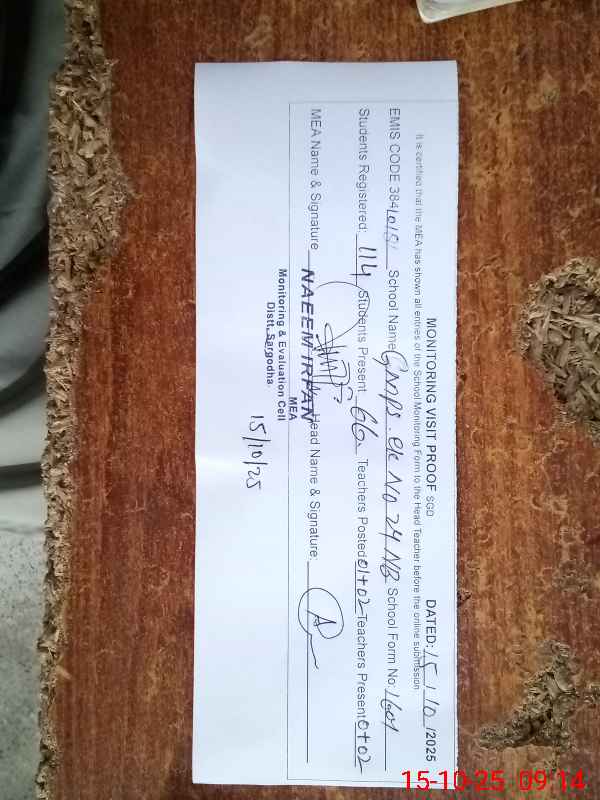 MONITORING VISIT PROOF SGD DATED: 15/10/2025
It is certified that the MEA has shown all entries of the School Monitoring Form to the Head Teacher before the online submission
EMIS CODE 384 School Name GMPS. No 24 NB School Form No: 1601
Students Registered: 114 Students Present 66 Teachers Posted 01+02 Teachers Present 01+02
MEA Name & Signature Head Name & Signature:
NAEEM IRFAN
MEA
Monitoring & Evaluation Cell
Distt. Sargodha.
15/10/25
15-10-25 09:14